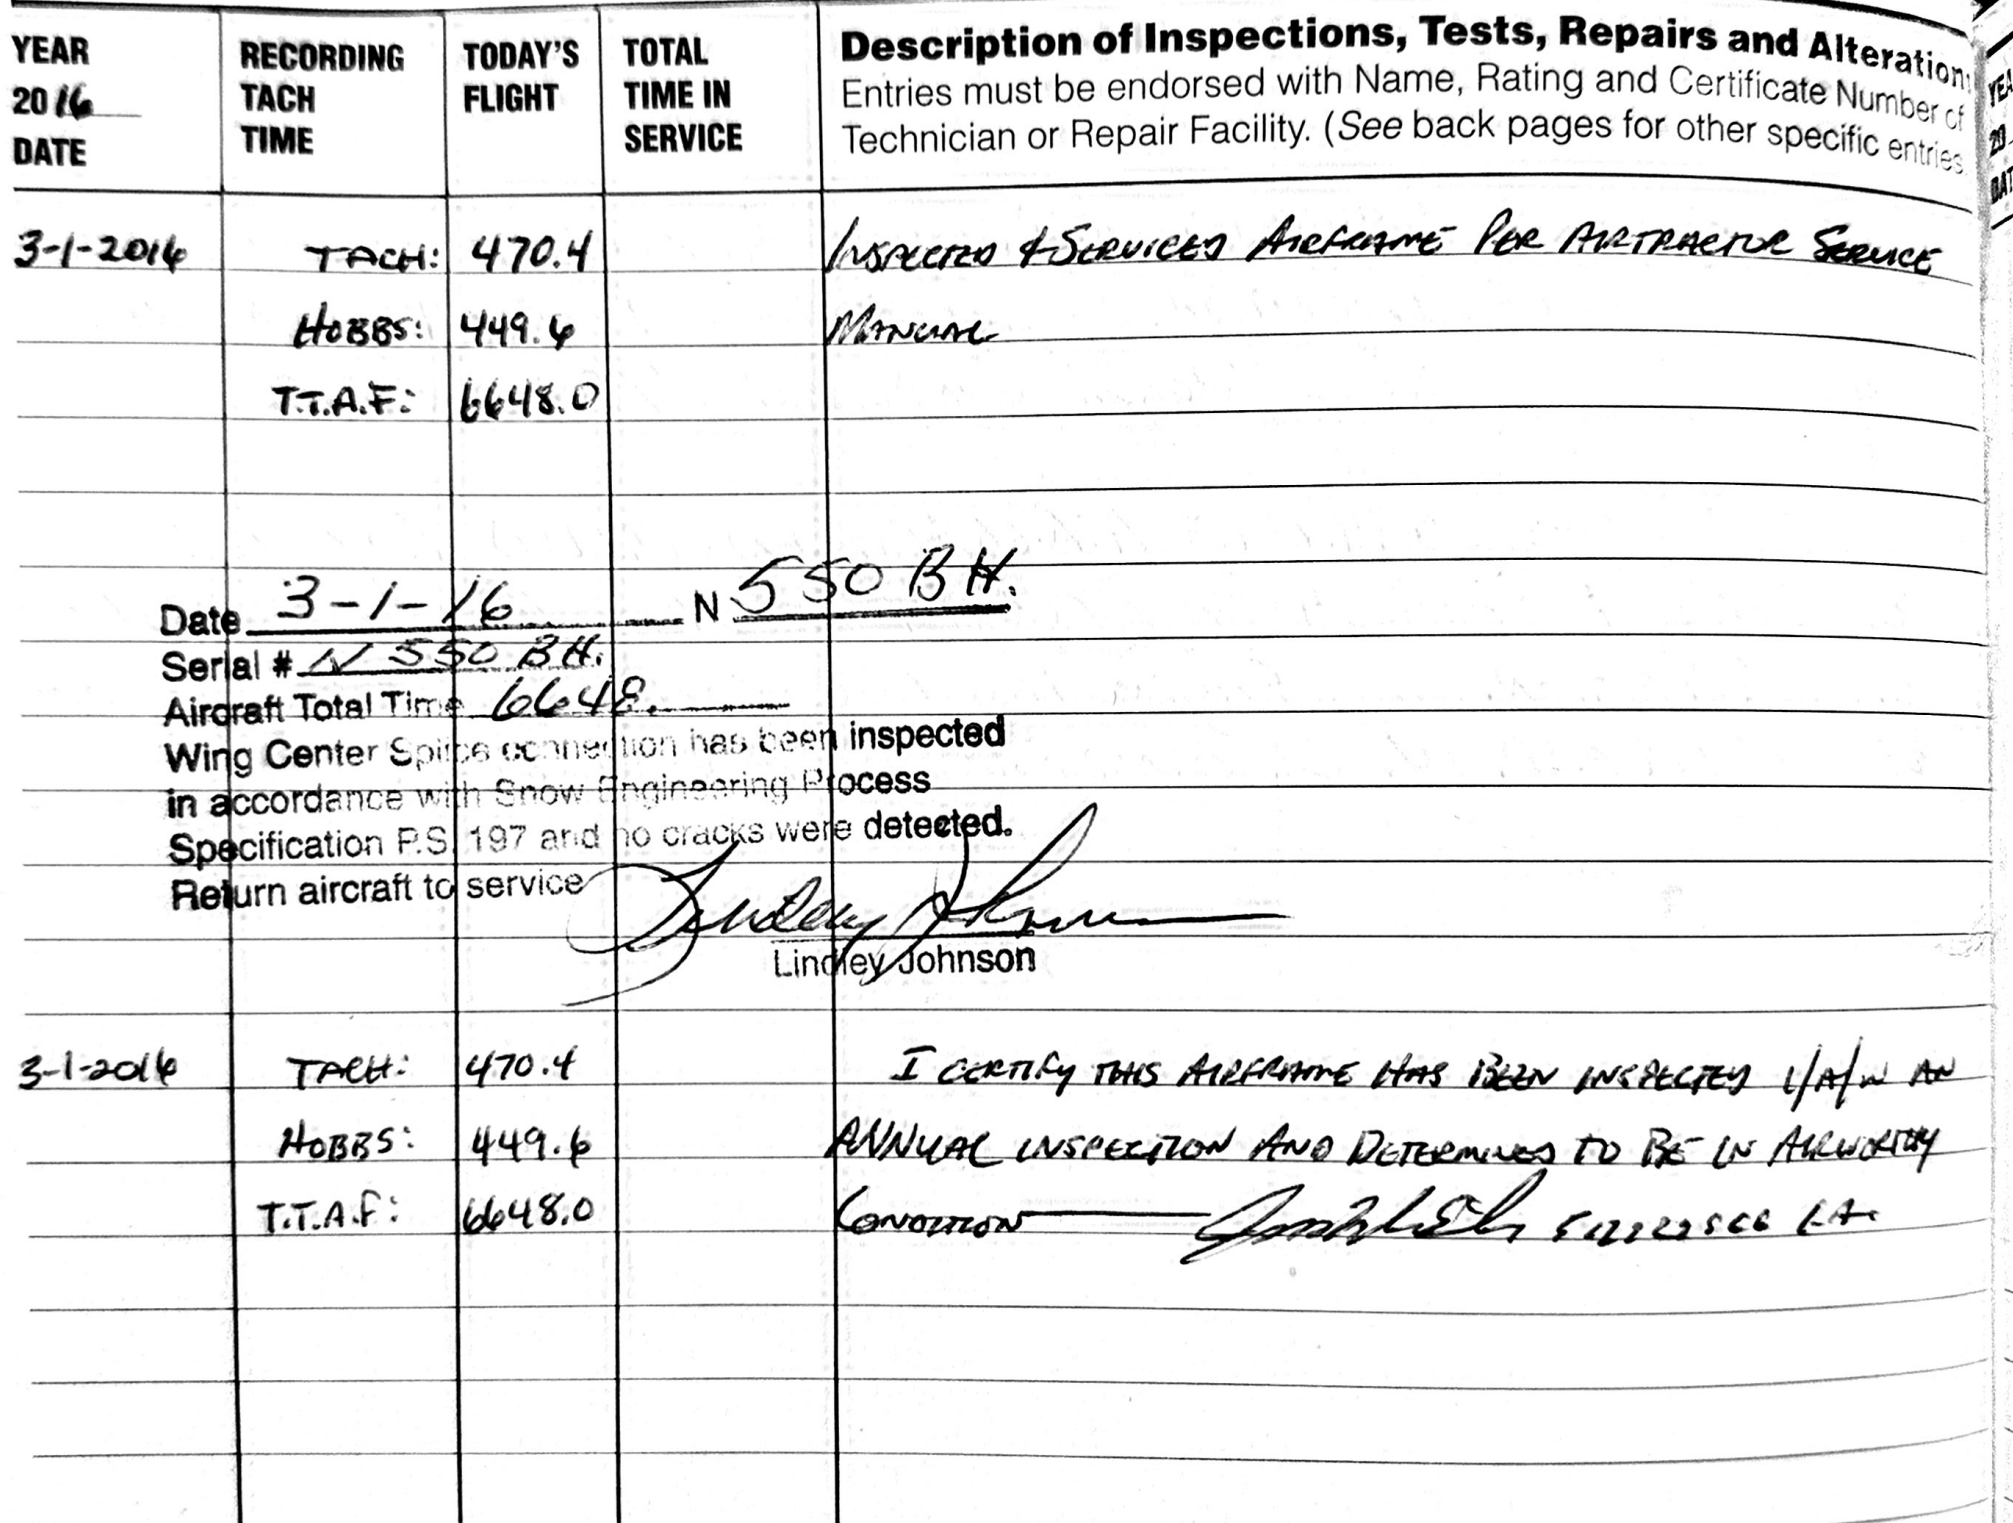 YEAR
2016
DATE
RECORDING
TACH
TIME
TODAY'S
FLIGHT
TOTAL
TIME IN
SERVICE
Description of Inspections, Tests, Repairs and Alteration
Entries must be endorsed with Name, Rating and Certificate Number of
Technician or Repair Facility. (See back pages for other specific entries
3-1-2016 TACH: 470.4 INSPECTED & SERVICED AIRFRAME PER AIRTRACTOR SERVICE
HOBBS: 449.6 MANUAL
T.T.A.F: 6648.0
Date 3-1-16 N 550 BH.
Serial # N 550 BH.
Aircraft Total Time 6648.
Wing Center Splice connection has been inspected
in accordance with Snow Engineering Process
Specification P.S. 197 and no cracks were detected.
Return aircraft to service Lindley Johnson
Lindley Johnson
3-1-2016 TACH: 470.4 I CERTIFY THIS AIRFRAME HAS BEEN INSPECTED I/A/W AN
HOBBS: 449.6 ANNUAL INSPECTION AND DETERMINED TO BE IN AIRWORTHY
T.T.A.F: 6648.0 CONDITION
YEA
20
DAT